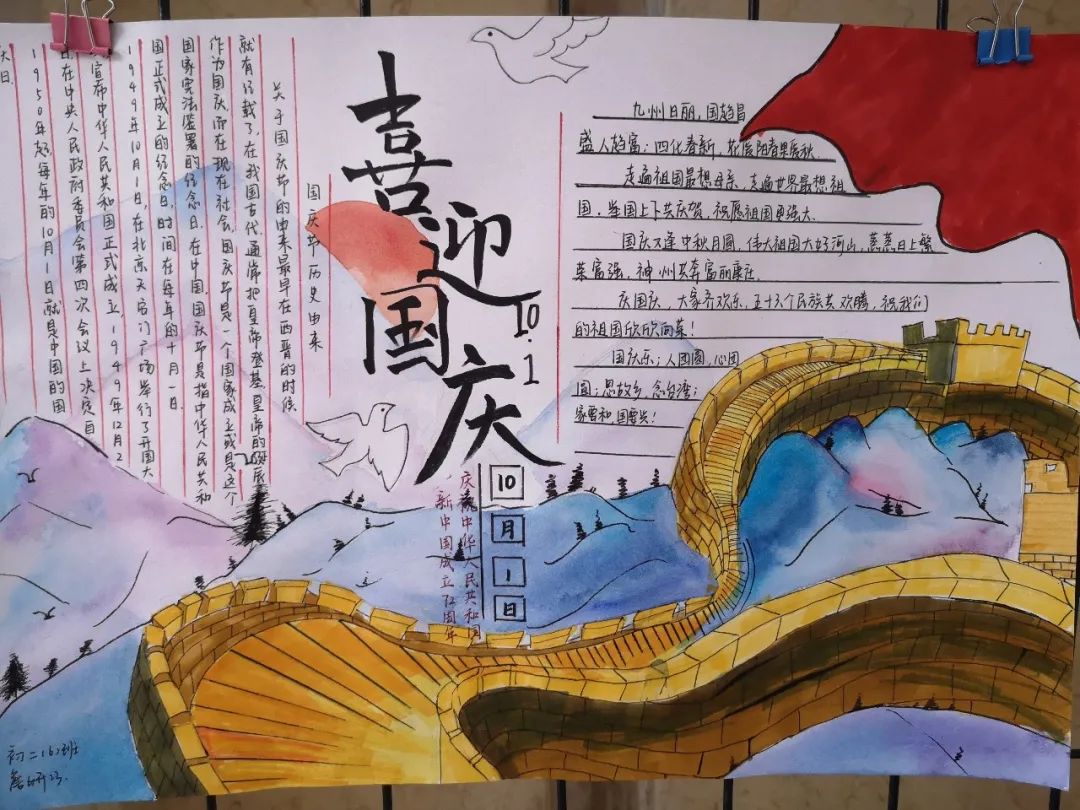 喜迎国庆
10.1
国庆节历史由来
关于国庆节的由来最早在西晋的时候
就有记载了,在我国古代,通常把皇帝登基,皇帝的诞辰
作为国庆,而在现在社会,国庆节是一个国家成立或是这个
国家宪法签署的纪念日,在中国,国庆节是指中华人民共和
国正式成立的纪念日,时间在每年的十月一日.
1949年10月1日,在北京天安门广场举行了开国大
宣布中华人民共和国正式成立,1949年12月2
日,在中央人民政府委员会第四次会议上决定,自
1950年起每年的10月1日就是中国的国
庆日.
庆祝中华人民共和国
新中国成立72周年
10月1日
九州日丽,国趋昌
盛人趋富;四化春新,花展阳春果展秋.
走遍祖国最想母亲,走遍世界最想祖
国,举国上下共庆贺,祝愿祖国更强大.
国庆又逢中秋月圆,伟大祖国大好河山,蒸蒸日上繁
荣富强,神州共奔富丽康庄.
庆国庆,大家齐欢乐,五十六个民族共欢腾,祝我们
的祖国欣欣向荣!
国庆乐;人团圆,心团
圆;思故乡,念台湾;
家要和,国要兴!
初二162班